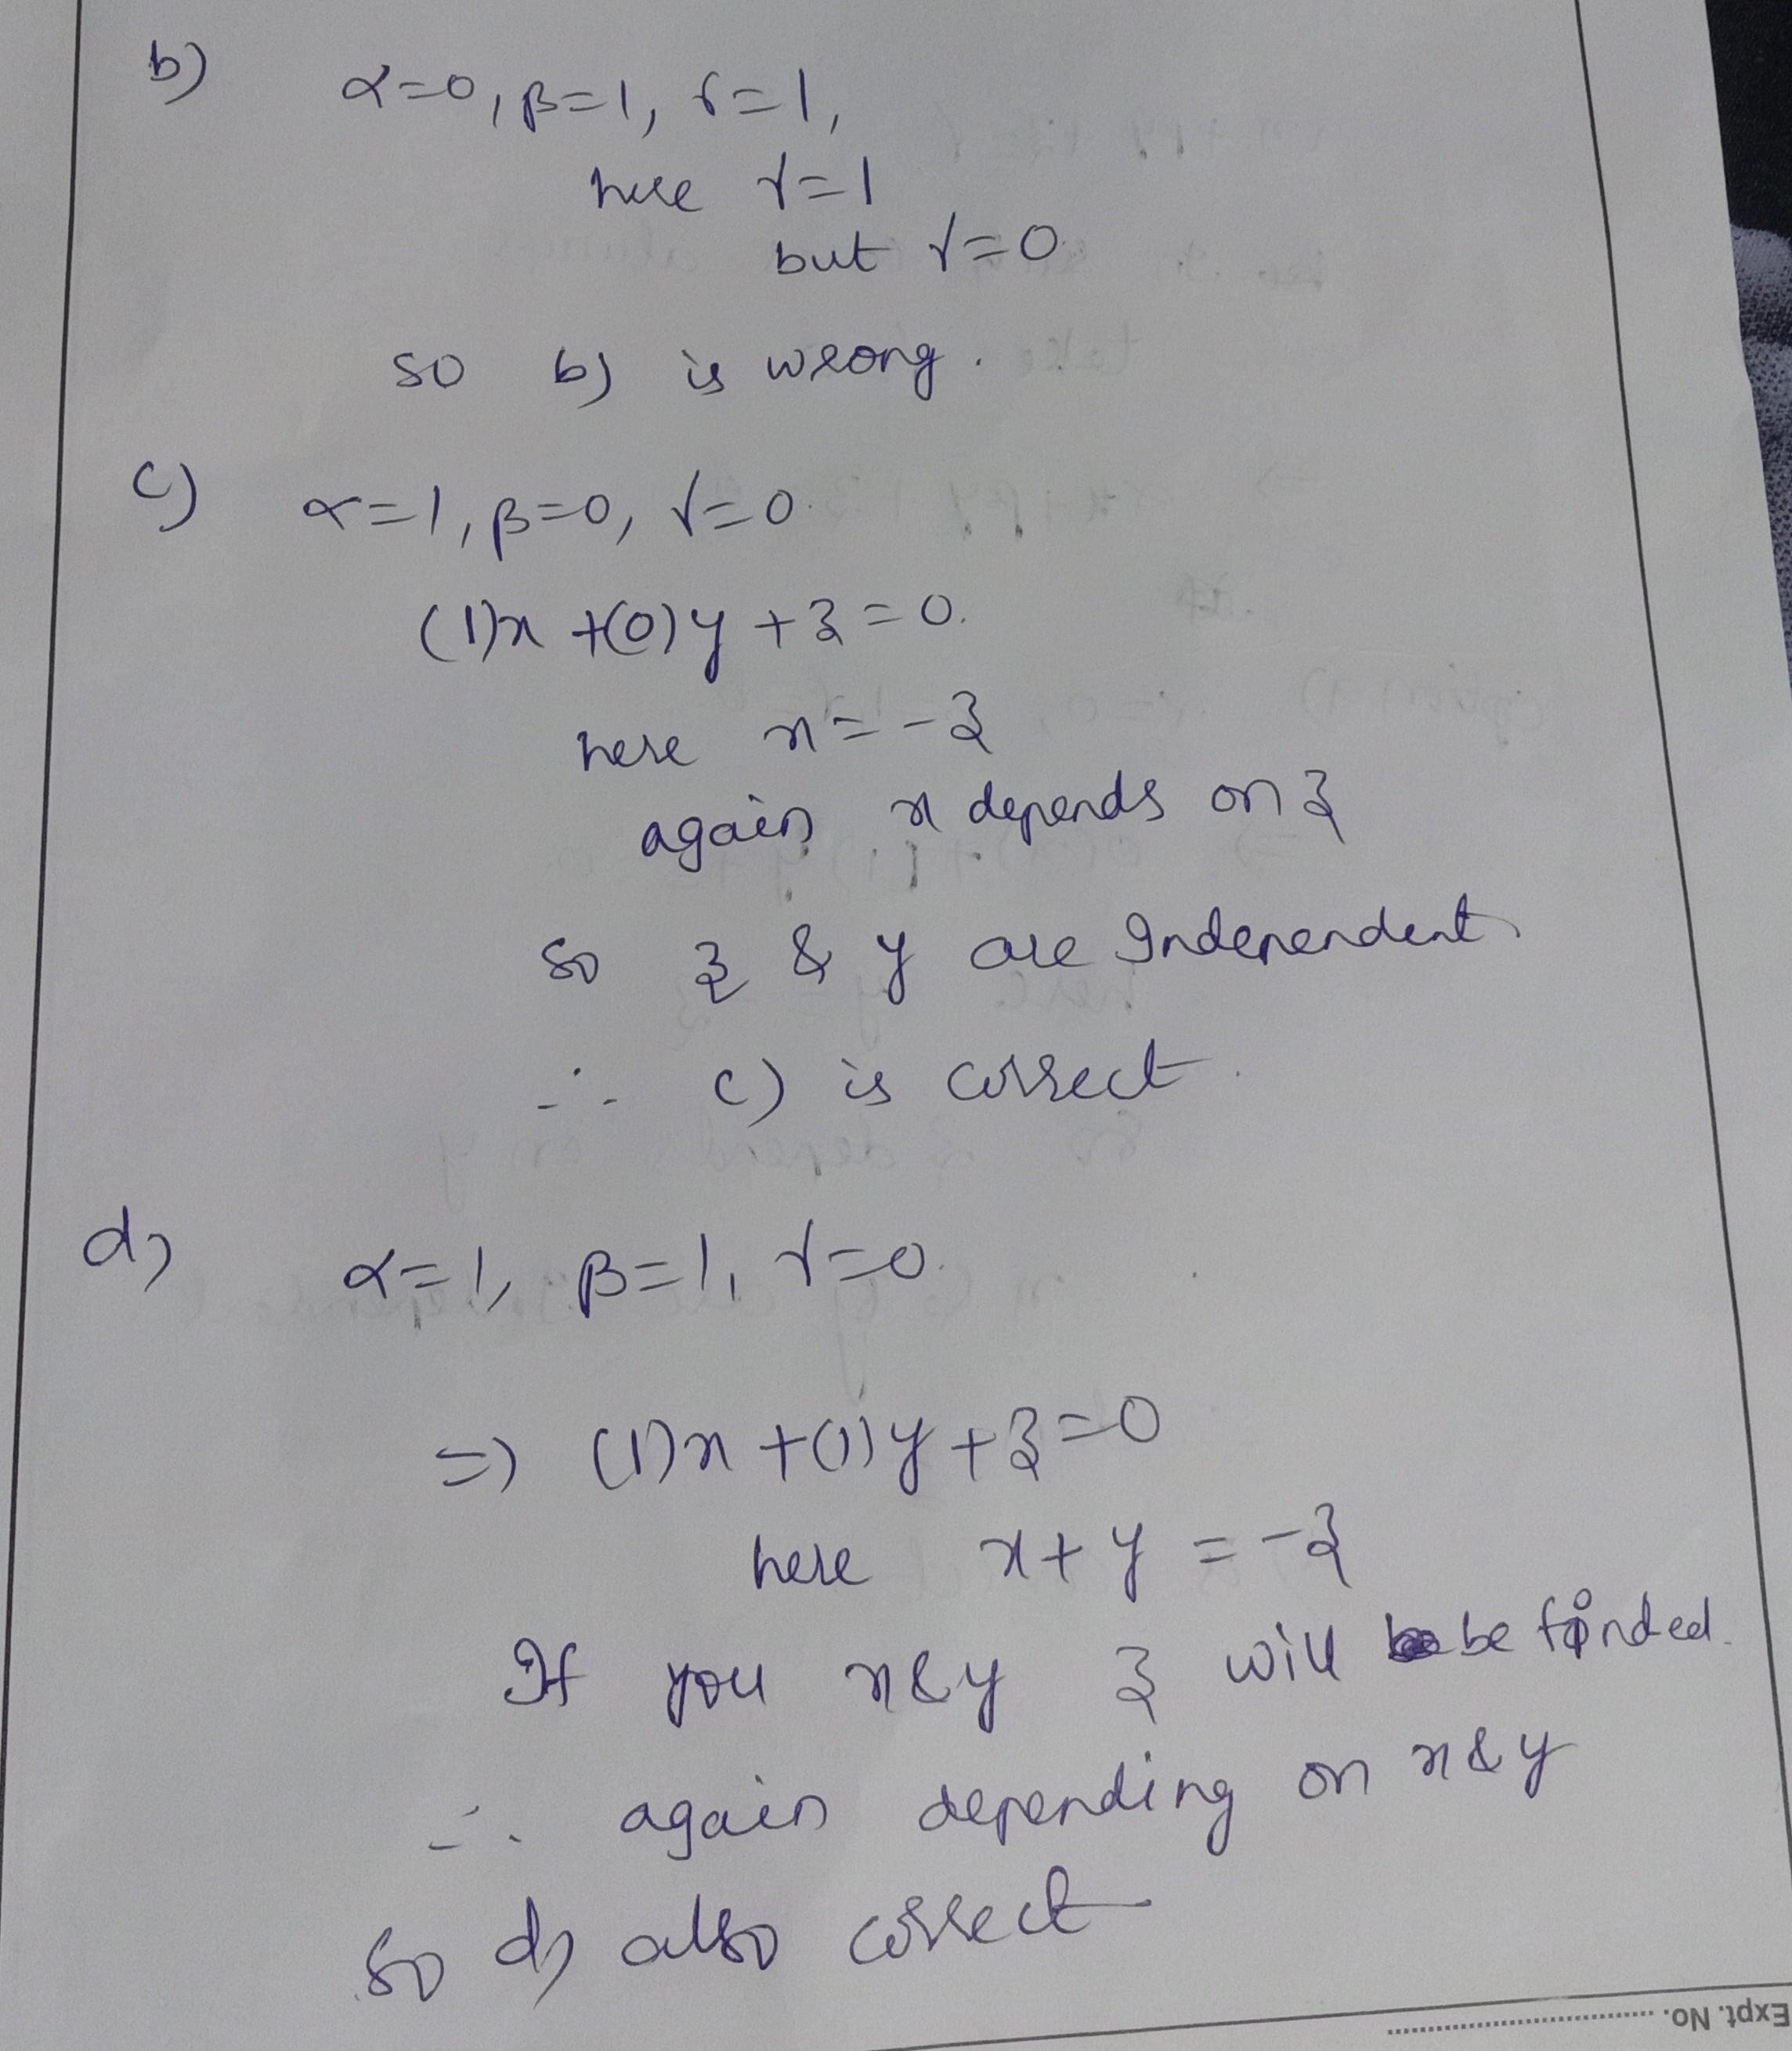 b) α=0, β=1, γ=1,
here γ=1
but γ=0
so b) is wrong.
c) α=1, β=0, γ=0.
(1)x +(0)y +z=0.
here x=-z
again x depends on z
so z & y are Independent
∴ c) is correct.
d) α=1, β=1, γ=0.
=) (1)x +(1)y +z=0
here x+y = -z
If you x&y z will be finded.
∴ again depending on x&y
so d) also correct
Expt. No. ..............................